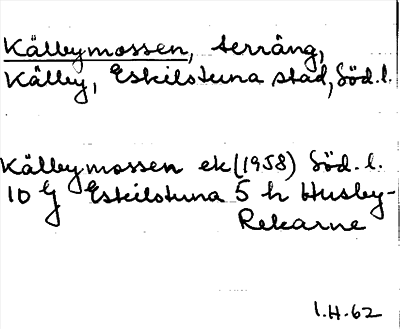 Kälbymossen, terräng,
Kälby, Eskilstuna stad, Söd. l.
Kälbymossen ek (1958) Söd. l.
10 G Eskilstuna 5 h Husby-
Rekarne
I.H-62